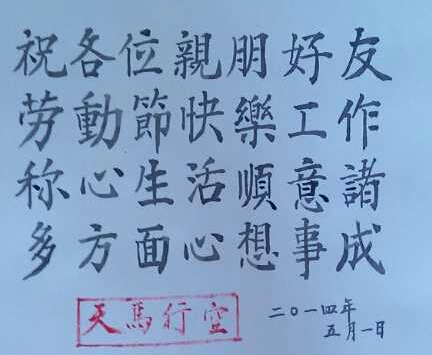 祝各位親朋好友
劳動節快樂工作
称心生活順意諸
多方面心想事成
天馬行空
二〇一四年
五月一日